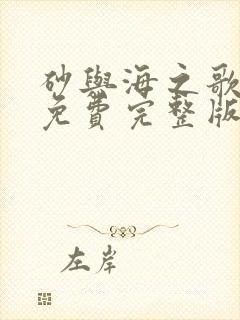 砂與海之歌
免費完整版
左岸